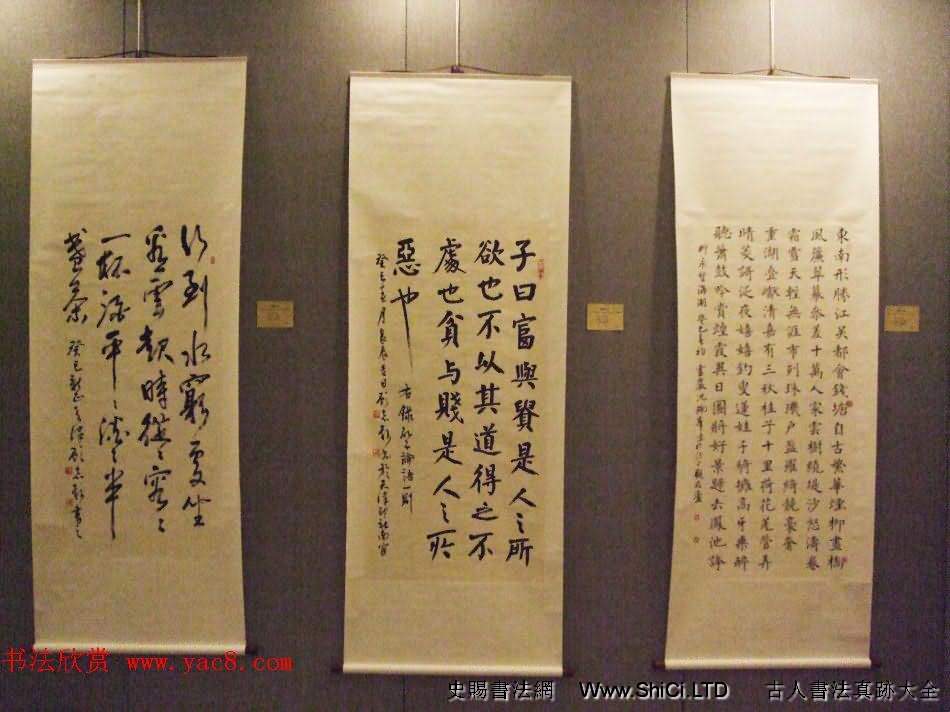 東南形勝江吴都會錢塘自古繁華煙柳畫橋
風簾翠幕參差十萬人家雲樹繞堤沙怒濤卷
霜雪天塹無涯市列珠璣户盈羅綺競豪奢
重湖疊巘清嘉有三秋桂子十里荷花羌管弄
晴菱謌泛夜嬉嬉釣叟蓮娃千騎擁高牙乘醉
聽簫鼓吟賞煙霞異日圖將好景歸去鳳池誇
柳永望海潮 癸巳
子曰富與貴是人之所
欲也不以其道得之不
處也貧与賤是人之所
惡也
右錄 論語一則
癸巳
行到水窮處坐
看雲起時從〻容〻
一杯 平〻淡〻半
盞茶 癸巳
书法欣赏 www.yac8.com
史賜書法網 Www.ShiCi.LTD 古人書法真跡大全